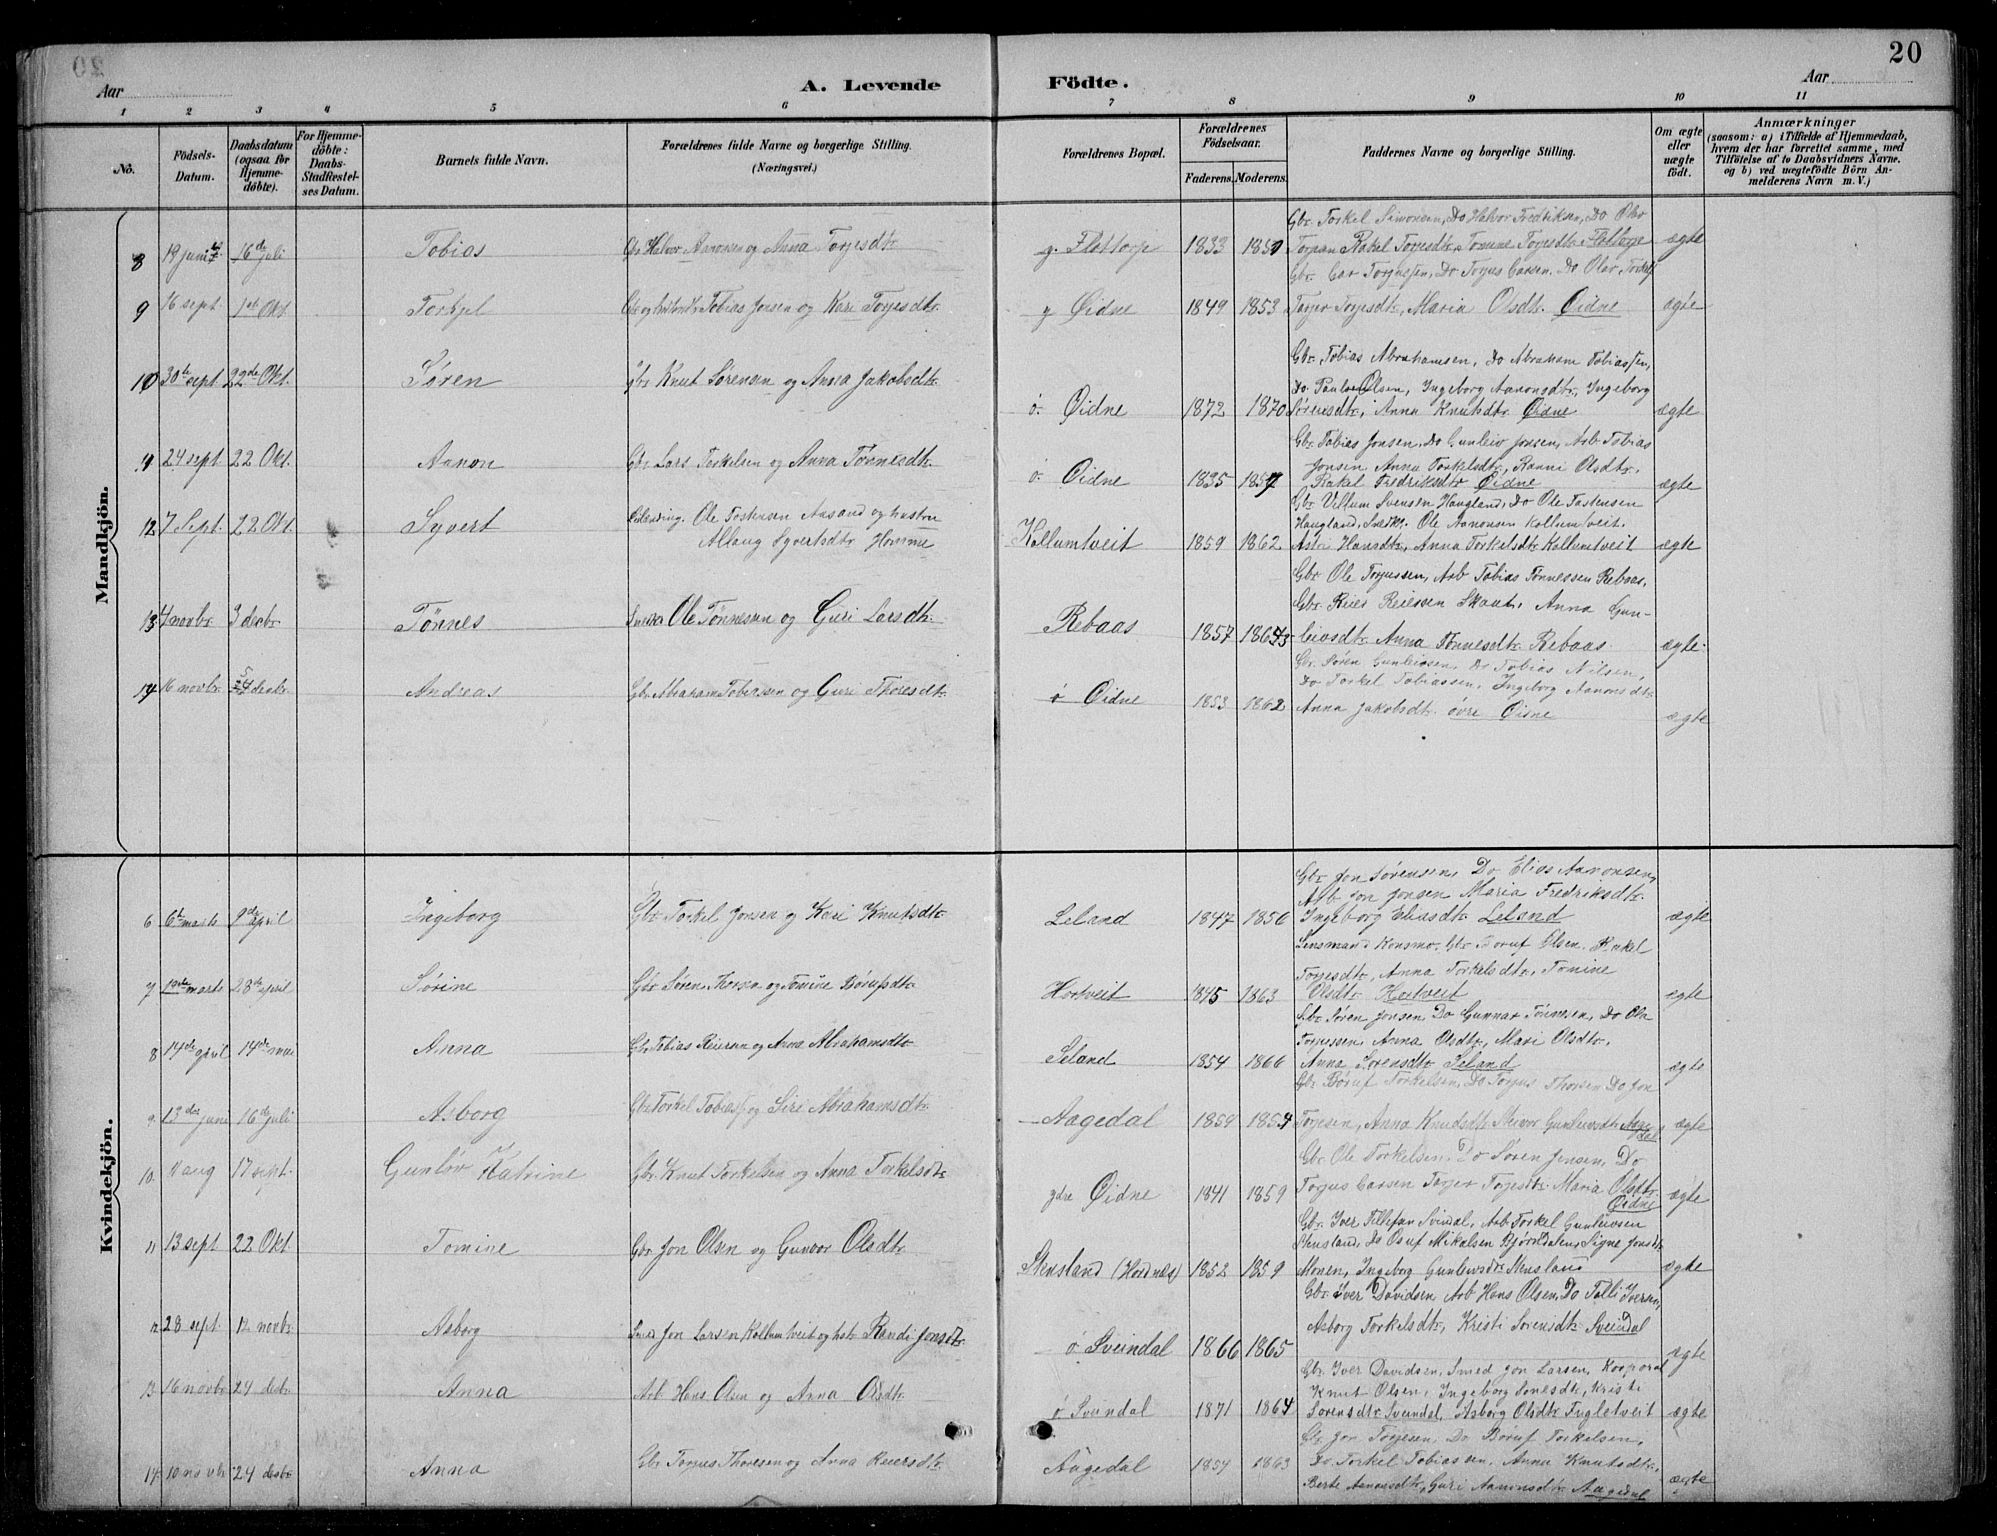 20
Aar
A. Levende
Födte.
Aar
1 2 3 4 5 6 7 8 9 10 11
No.
Födsels-Datum.
Daabsdatum (ogsaa for Hjemme-döbte).
For Hjemme-döbte: Daabs-Stadfæstel-ses Datum.
Barnets fulde Navn.
Forældrenes fulde Navne og borgerlige Stilling.
(Næringsvei.)
Forældrenes Bopæl.
Forældrenes Födselsaar.
Faderens. Moderens.
Faddernes Navne og borgerlige Stilling.
Om ægte eller uægte födt.
Anmærkninger
(saasom: a) i Tilfælde af Hjemmedaab, hvem der har forrettet samme, med Tilföielse af to Daabsvidners Navne. og b) ved uægtefödte Börn An-melderens Navn m. V.)
Mandkjön.
Gbr. Torkel Simonsen, Do Halvor Fredriksen, Do Olav
8 19 juni 16de juli Tobias Gbr Halvor Aanonsen og Anna Torjesdtr y. Flottorp 1833 1857 Rakel Torjesdtr, Tomine Torjesdtr. Flottorp ægte
Gbr. Torjussen, Do Torjus Do Olav Torkels
9 16 sept. 1ste Okt. Torkjel Tobias Jonsen og Kari Torjesdtr. y Øidne 1849 1853 Torjer Torjesdtr, Maria Olsdtr. Øidne ægte
Gbr. Tobias Abrahamsen, Do Abraham Tobiassen,
10 30te sept. 22de Okt. Søren Gbr Knut Sørensen og Anna Jakobsdtr Do. Olsen, Ingeborg Aanonsdtr, Ingeborg
ö. Øidne 1872 1870 Sørensdtr, Anna Knutsdtr Øidne ægte
Gbr. Tobias Jonsen, Do Gunleiv Jonsen, Arb Tobias
11 24 sept 22 Okt. Aanon Gbr Lars Torkelsen og Anna Tønnesdtr. Jonsen Anna Torkelsdtr, Ranni Olsdtr.
ö. Øidne 1835 1857 Rakel Fredriksdtr Øidne ægte
Gbr Villum Svensen Haugland, Do Ole Torkensen
12 7 Sept. 22 Okt. Syvert Ole Aasand og hustru Haugland, Ole Aanonsen Kollumtveit.
Syvertsdtr Homme Kollumtveit 1859 1862 Astri Hansdtr, Anna Torkelsdtr Kollumtveit ægte
Gbr Ole Torjussen, Arb Tobias Tønnessen Rebaas,
Gbr. Reier Reiersen Skaut, Anna Gun-
13 4 novbr 3 decbr Tønnes Ole Tønnesen og Guri Larsdtr. Rebaas 1857 1864 leivsdtr Anna Tønnesdtr Rebaas. ægte.
Gbr. Søren Gunleivsen, Do Tobias Nilsen,
14 16 novbr. 5 decbr Andreas Gbr Abraham Tobiassen og Guri Thoresdtr. Do Torkel Tobiassen, Ingeborg Aanonsdtr.
ö Øidne 1853 1862 Anna Jakobsdtr. øvre Øidne ægte
Kvindekjön.
Gbr Jon Sørensen, Do Elias Aanonsen,
Arb Jon Jonsen Maria Fredriksdtr.
6 6te marts 9de april Ingeborg Gbr Torkel Jonsen og Kari Knutsdtr Leland 1847 1856 Ingeborg Eliasdtr. Leland ægte
Lensmand Konsmo. Gbr Olsen. Rakel
7 marts 28de april Sørine Gbr Søren og Tomine Børufsdtr. Torjesdtr, Anna Torkelsdtr, Tomine
Hortveit 1845 1863 Olsdtr. Hortveit ægte
Gbr Søren Jonsen, Do Gunnar Tønnesen, Do Ola
8 14de april 14de mai Anna Gbr Tobias Reiersen og Anna Abrahamsdtr Torjussen, Anna Olsdtr, Mari Olsdtr.
Leland 1854 1866 Anna Sørensdtr Leland ægte
Gbr Børuf Torkelsen, Do Torjus Thorsen Do Jon
9. 13de juni 16de juli Asborg Gbr Torkel Tobiass og Siri Abrahamsdtr. Aagedal 1859 1854 Torjesen, Anna Knudsdtr Gunleivsdtr. Aagedal ægte
Gbr Ole Torkelsen, Do Søren Jensen, Do
10. aug 17 sept. Gunlöv Katrine Gbr. Knut Torkelsen og Anna Torkelsdtr ydre Øidne 1841 1859 Torjus Torjer Torjesdtr. Maria Olsdtr. Øidne ægte
Gbr. Iver Svindal, Arb Torkel Gunleivsen
11 13 sept 22 Okt. Tomine Gbr Jon Olsen og Gunvor Olsdtr. Stensland, Do Osuf Mikalsen Bjørndalen, Signe Jonsdtr
Stensland (Hordnæs) 1852 1859 Monen, Ingeborg Gunleivsdtr Stensland ægte
Gbr Iver Davidsen, Arb Hans Olsen, Do Tolli Iversen,
12 28 sept 12 novbr Asborg Smed Jon Larsen Kollumtveit og hstr. Randi Jonsdtr. Asborg Torkelsdtr, Kristi Sørensdtr Sveindal
ö Sveindal 1866 1865 ægte
Gbr Iver Davidsen, Smed Jon Larsen, Korporal
13 16 novbr 24 decbr Anna Arb. Hans Olsen og Anna Olsdtr. Knut Olsen, Ingeborg Jonesdtr, Kristi
ö Sveindal 1871 1864 Sørensdtr Sveindal, Asborg Olsdtr Fugletveit ægte
Gbr Jon Torjesen, Do Boruf Torkelsen,
14 10 novbr 24 decbr Anna Gbr Torjus Thoresen og Anna Reiersdtr. Aagedal 1854 1863 Do Torkel Tobiassen, Anna Knutsdtr,
Berte Aanonsdtr, Guri Aanonsdtr Aagedal ægte